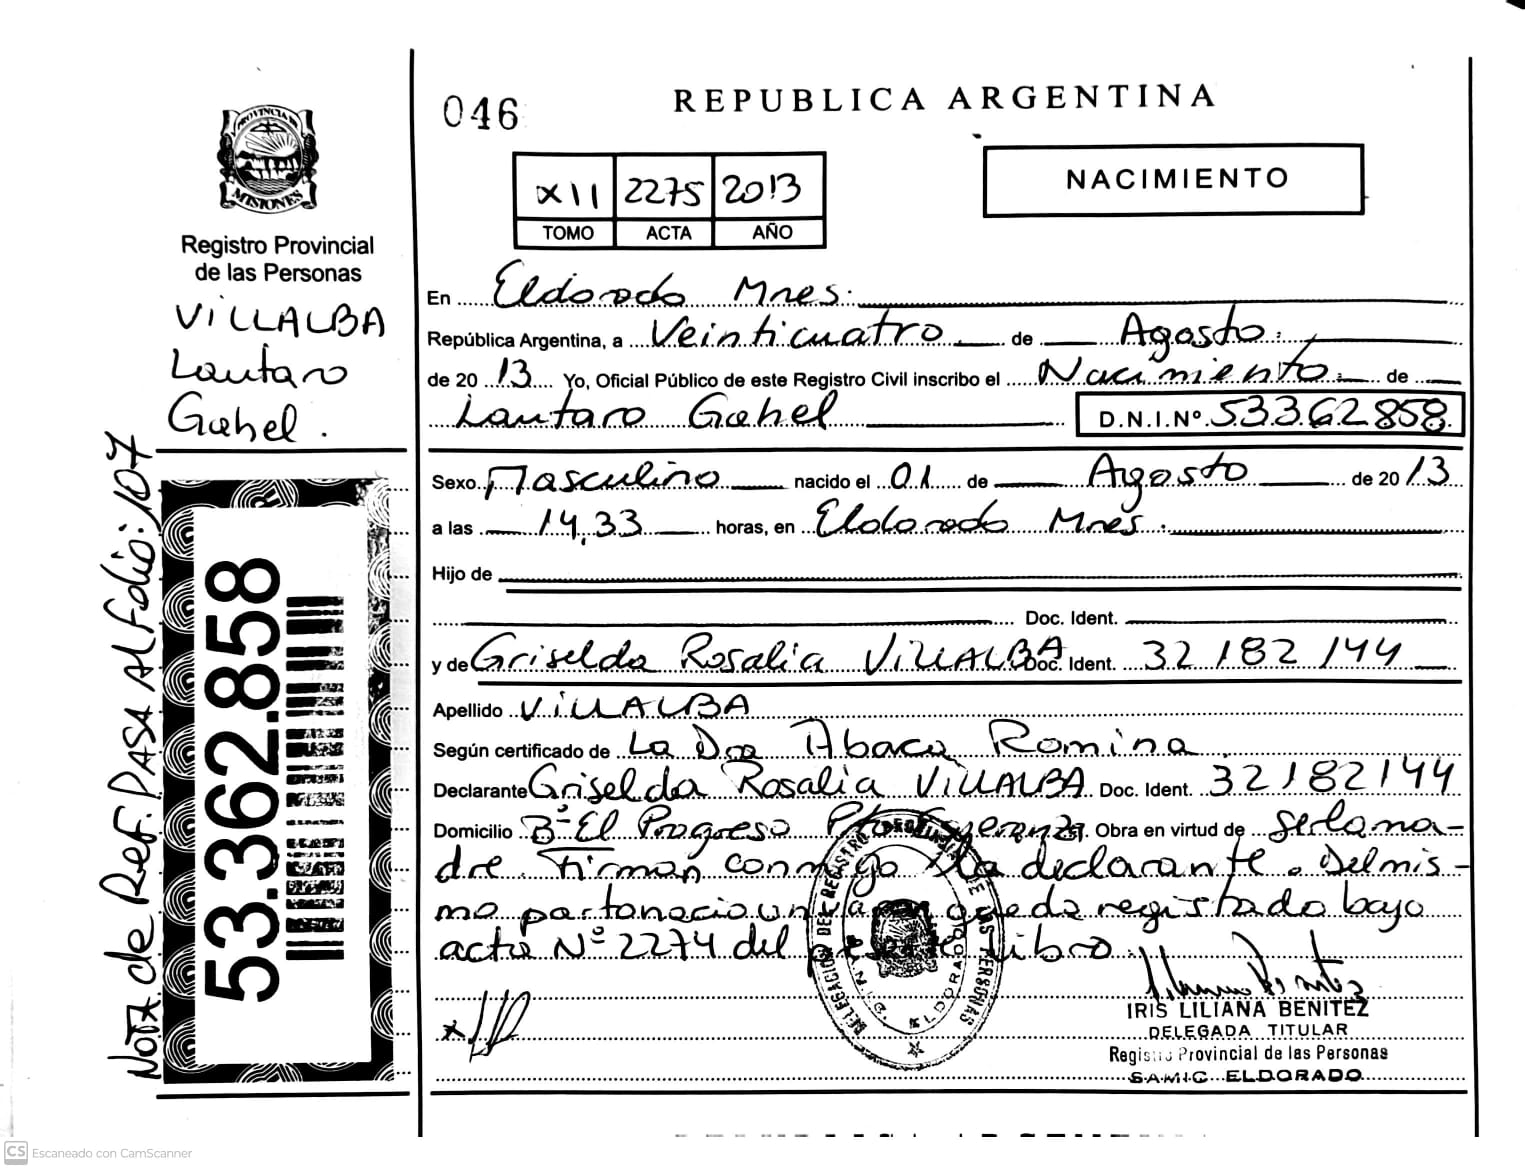 046
REPUBLICA ARGENTINA
NACIMIENTO
XII 2275 2013
TOMO ACTA AÑO
PROVINCIA DE
MISIONES
Registro Provincial
de las Personas
VILLALBA
Lautaro
Gahel.
Nota de Ref. PASA Al Folio: 107
53.362.858
En Eldorado Mnes.
República Argentina, a Veinticuatro de Agosto
de 2013 Yo, Oficial Público de este Registro Civil inscribo el Nacimiento de
Lautaro Gahel D.N.I.Nº 53362858
Sexo Masculino nacido el 01 de Agosto de 2013
a las 14,33 horas, en Eldorado Mnes.
Hijo de
Doc. Ident.
y de Griselda Rosalia VILLALBA Doc. Ident. 32182144
Apellido VILLALBA
Según certificado de La Dra Abaca Romina
Declarante Griselda Rosalia VILLALBA Doc. Ident. 32182144
Domicilio Bº El Progreso Pto Esperanza. Obra en virtud de ser la ma-
dre. Firman conmigo la declarante. Del mis-
mo parto nacio un queda registrado bajo
acta Nº 2274 del presente Libro.
DELEGACION DEL REGISTRO PROVINCIAL DE LAS PERSONAS
ELDORADO
IRIS LILIANA BENITEZ
DELEGADA TITULAR
Registro Provincial de las Personas
SAMIC ELDORADO
CS Escaneado con CamScanner